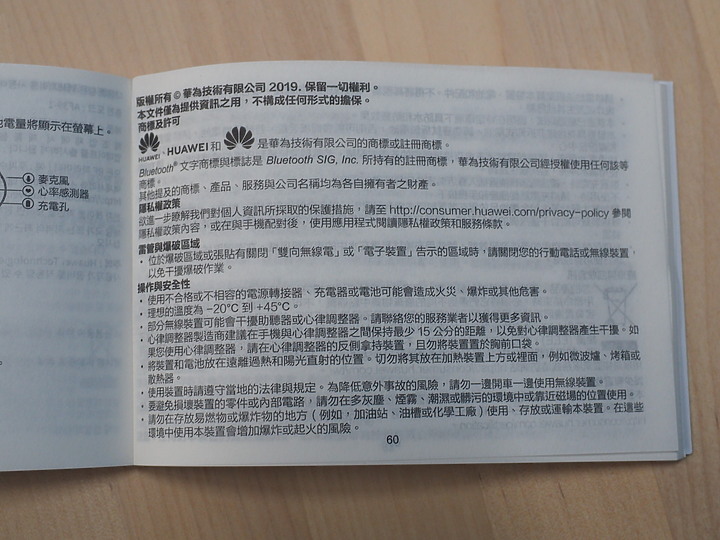 電量將顯示在螢幕上。
麥克風
心率感測器
充電孔
版權所有 © 華為技術有限公司 2019. 保留一切權利。
本文件僅為提供資訊之用，不構成任何形式的擔保。
商標及許可
HUAWEI、HUAWEI 和 是華為技術有限公司的商標或註冊商標。
Bluetooth® 文字商標與標誌是 Bluetooth SIG, Inc. 所持有的註冊商標，華為技術有限公司經授權使用任何該等
商標。
其他提及的商標、產品、服務與公司名稱均為各自擁有者之財產。
隱私權政策
欲進一步瞭解我們對個人資訊所採取的保護措施，請至 http://consumer.huawei.com/privacy-policy 參閱
隱私權政策內容，或在與手機配對後，使用應用程式閱讀隱私權政策和服務條款。
雷管與爆破區域
• 位於爆破區域或張貼有關閉「雙向無線電」或「電子裝置」告示的區域時，請關閉您的行動電話或無線裝置，
以免干擾爆破作業。
操作與安全性
• 使用不合格或不相容的電源轉接器、充電器或電池可能會造成火災、爆炸或其他危害。
• 理想的溫度為 –20°C 到 +45°C。
• 部分無線裝置可能會干擾助聽器或心律調整器。請聯絡您的服務業者以獲得更多資訊。
• 心律調整器製造商建議在手機與心律調整器之間保持最少 15 公分的距離，以免對心律調整器產生干擾。如
果您使用心律調整器，請在心律調整器的反側拿持裝置，且勿將裝置置於胸前口袋。
• 將裝置和電池放在遠離過熱和陽光直射的位置。切勿將其放在加熱裝置上方或裡面，例如微波爐、烤箱或
散熱器。
• 使用裝置時請遵守當地的法律與規定。為降低意外事故的風險，請勿一邊開車一邊使用無線裝置。
• 要避免損壞裝置的零件或內部電路，請勿在多灰塵、煙霧、潮濕或髒污的環境中或靠近磁場的位置使用。
• 請勿在存放易燃物或爆炸物的地方（例如，加油站、油槽或化學工廠）使用、存放或運輸本裝置。在這些
環境中使用本裝置會增加爆炸或起火的風險。
60